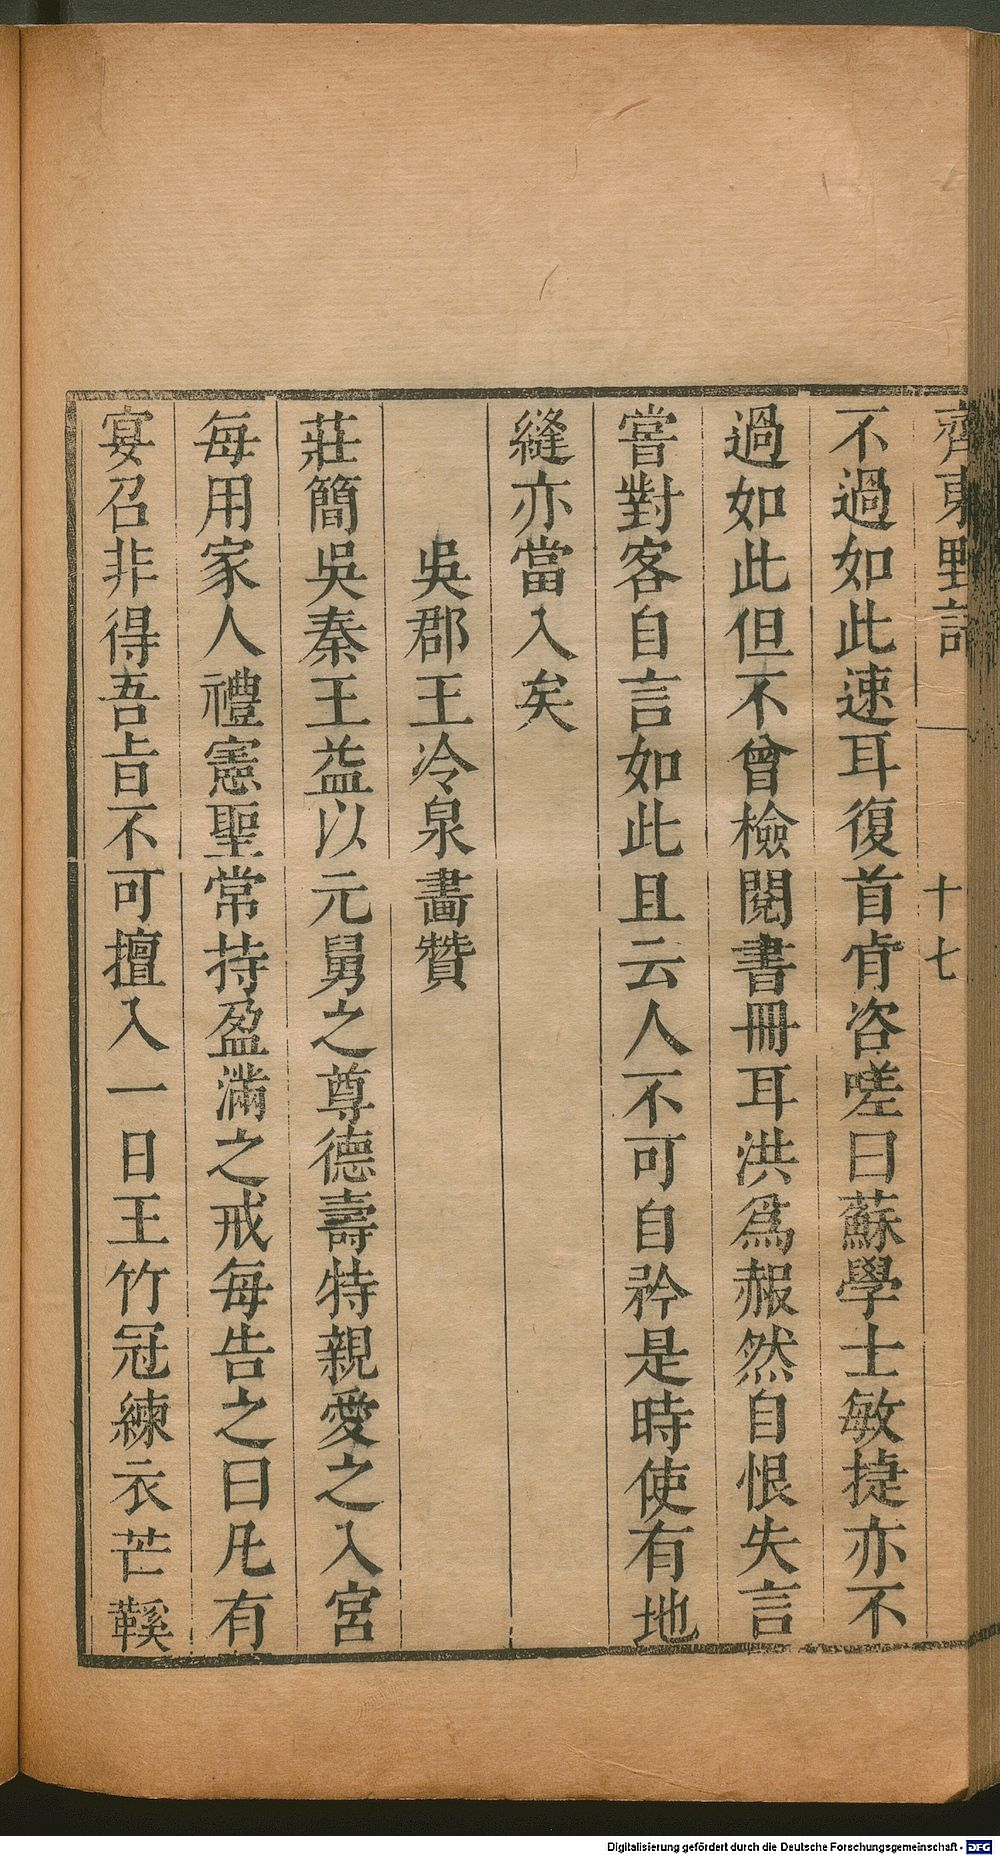 齊東野語
十七
不過如此速耳復首肯咨嗟曰蘇學士敏捷亦不
過如此但不曾檢閱書冊耳洪爲赧然自恨失言
嘗對客自言如此且云人不可自矜是時使有地
縫亦當入矣
吳郡王冷泉畫贊
莊簡吳秦王益以元舅之尊德壽特親愛之入宮
每用家人禮憲聖常持盈滿之戒每告之曰凡有
宴召非得吾旨不可擅入一日王竹冠練衣芒鞵
Digitalisierung gefördert durch die Deutsche Forschungsgemeinschaft - DFG